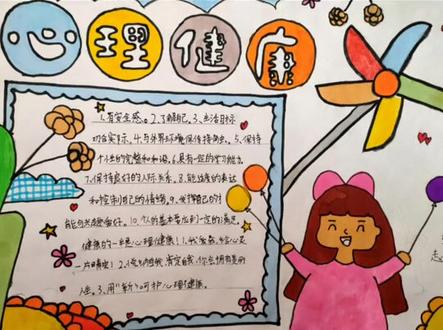 心理健康
1.有安全感。2.了解自己。3.生活目标
切合实际。4.与外界环境保持接触。5.保持
个性的完整和和谐。6.具有一定的学习能力。
7.保持良好的人际关系。8.能适度的表达
和控制自己的情绪。9.发挥自己的
能与兴趣爱好。10.个人的基本需应到一定的满足。
健康的一半是心理健康！1.
2. 肯定自我，你会拥有美的
人生。3.用"新"呵护心理健康。
志